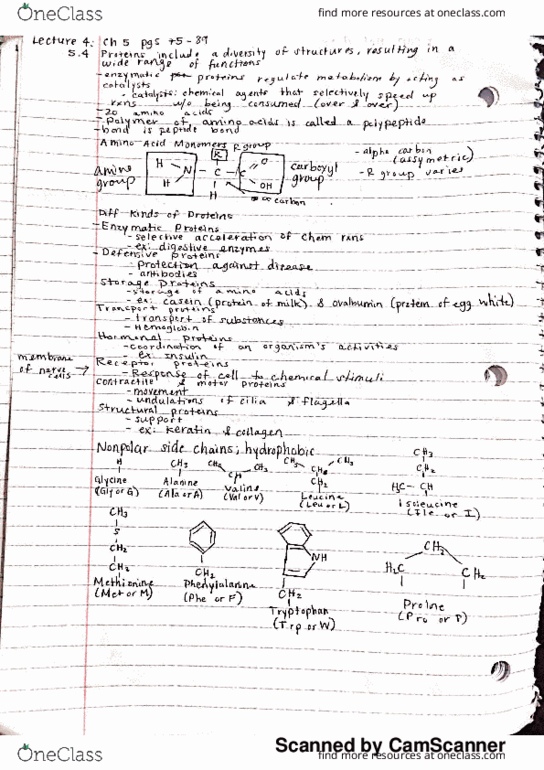 OneClass
find more resources at oneclass.com
Lecture 4: Ch 5 pgs 75-89
5.4 Proteins include a diversity of structures, resulting in a
wide range of functions
-enzymatic proteins regulate metabolism by acting as
catalysts
-catalysts: chemical agents that selectively speed up
rxns w/o being consumed (over & over)
-20 amino acids
-Polymer of amino acids is called a polypeptide
-bond is peptide bond
Amino Acid Monomers
R group
- alpha carbon
(assymetric)
- R group varies
amino
group
H
H
N
R
C
H
C
O
OH
carboxyl
group
∝ carbon
Diff Kinds of Proteins
-Enzymatic Proteins
-selective acceleration of chem rxns
-ex: digestive enzymes
-Defensive proteins
-protection against disease
-antibodies
Storage proteins
-storage of amino acids
-ex: casein (protein of milk) & ovalbumin (protein of egg white)
Transport proteins
-transport of substances
-Hemoglobin
Hormonal proteins
-coordination of an organism's activities
-ex: insulin
membrane
of nerve
cells →
Receptor proteins
-Response of cell to chemical stimuli
Contractile & motor proteins
-movement
-undulations of cilia & flagella
Structural proteins
-support
-ex: keratin & collagen
Nonpolar side chains; hydrophobic
H
Glycine
(Gly or G)
CH3
Alanine
(Ala or A)
CH3 CH3
CH
Valine
(Val or V)
CH3 CH3
CH
CH2
Leucine
(Leu or L)
CH3
CH2
H3C- CH
isoleucine
(Ile or I)
CH3
S
CH2
CH2
Methionine
(Met or M)
CH2
Phenylalanine
(Phe or F)
NH
CH2
Tryptophan
(Trp or W)
CH2
H2C CH2
Proline
(Pro or P)
Scanned by CamScanner
OneClass
find more resources at oneclass.com